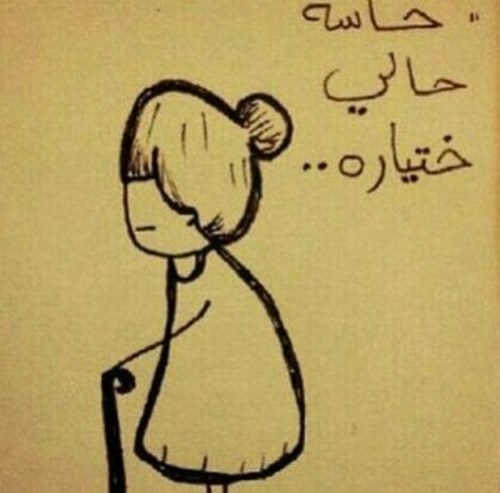 " حاسه
حالي
ختياره..